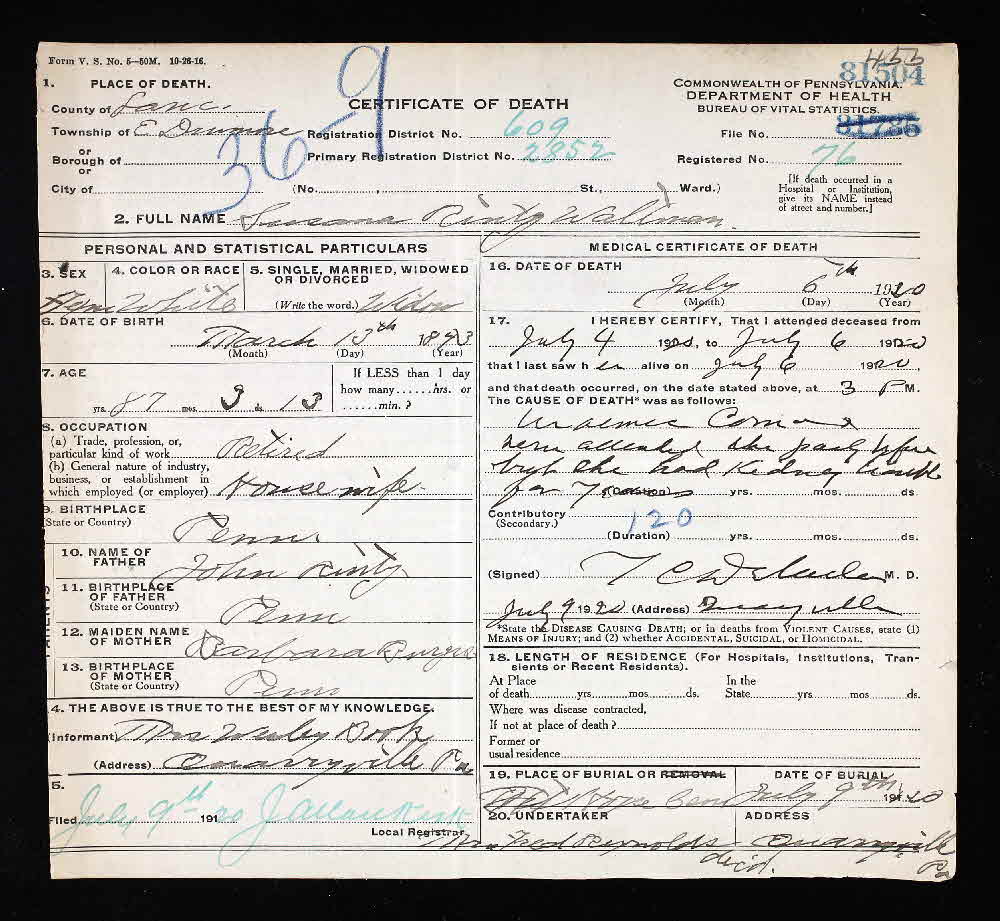 Form V. S. No. 5—50M. 10-26-16.
455
81504
1. PLACE OF DEATH.
County of Lanc.
Township of E Drumore
or
Borough of
or
City of
369
CERTIFICATE OF DEATH
Registration District No. 609
Primary Registration District No. 2352
(No. , St., Ward.)
COMMONWEALTH OF PENNSYLVANIA.
DEPARTMENT OF HEALTH
BUREAU OF VITAL STATISTICS.
File No.
Registered No. 76
[If death occurred in a
Hospital or Institution,
give its NAME instead
of street and number.]
2. FULL NAME Susana Rintz Waltman.
PERSONAL AND STATISTICAL PARTICULARS
3. SEX
Fem
4. COLOR OR RACE
White
5. SINGLE, MARRIED, WIDOWED
OR DIVORCED
(Write the word.) Widow
6. DATE OF BIRTH
March 13th
(Month) (Day) (Year)
7. AGE
yrs. 87 mos. 3 ds. 13
If LESS than 1 day
how many......hrs. or
......min.?
8. OCCUPATION
(a) Trade, profession, or,
particular kind of work Retired
(b) General nature of industry,
business, or establishment in
which employed (or employer) Housewife
9. BIRTHPLACE
(State or Country)
Penn.
10. NAME OF
FATHER
John Rintz
11. BIRTHPLACE
OF FATHER
(State or Country)
Penn
12. MAIDEN NAME
OF MOTHER
Barbara
13. BIRTHPLACE
OF MOTHER
(State or Country)
Penn
PARENTS
4. THE ABOVE IS TRUE TO THE BEST OF MY KNOWLEDGE.
(Informant) Mrs Book
(Address) Quarryville Pa
5.
Filed July 9th 1920 J Allan
Local Registrar
MEDICAL CERTIFICATE OF DEATH
16. DATE OF DEATH
July 6th 1920
(Month) (Day) (Year)
17. I HEREBY CERTIFY, That I attended deceased from
July 4 1920, to July 6 1920
that I last saw her alive on July 6 1920,
and that death occurred, on the date stated above, at 3 PM.
The CAUSE OF DEATH* was as follows:
Uraemic Coma
attended the party before
but she had Kidney trouble
for 7 (Duration) yrs. mos. ds.
Contributory
(Secondary.)
120
(Duration) yrs. mos. ds.
(Signed) M. D.
July 9 1920 (Address) Quarryville
*State the DISEASE CAUSING DEATH; or in deaths from VIOLENT CAUSES, state (1)
MEANS OF INJURY; and (2) whether ACCIDENTAL, SUICIDAL, or HOMICIDAL.
18. LENGTH OF RESIDENCE (For Hospitals, Institutions, Tran-
sients or Recent Residents).
At Place
of death yrs. mos. ds.
In the
State yrs. mos. ds.
Where was disease contracted,
If not at place of death?
Former or
usual residence
19. PLACE OF BURIAL OR REMOVAL
Cem
DATE OF BURIAL
July 9th 1920
20. UNDERTAKER
Mrs Fred Reynolds
dec'd.
ADDRESS
Quarryville
Pa